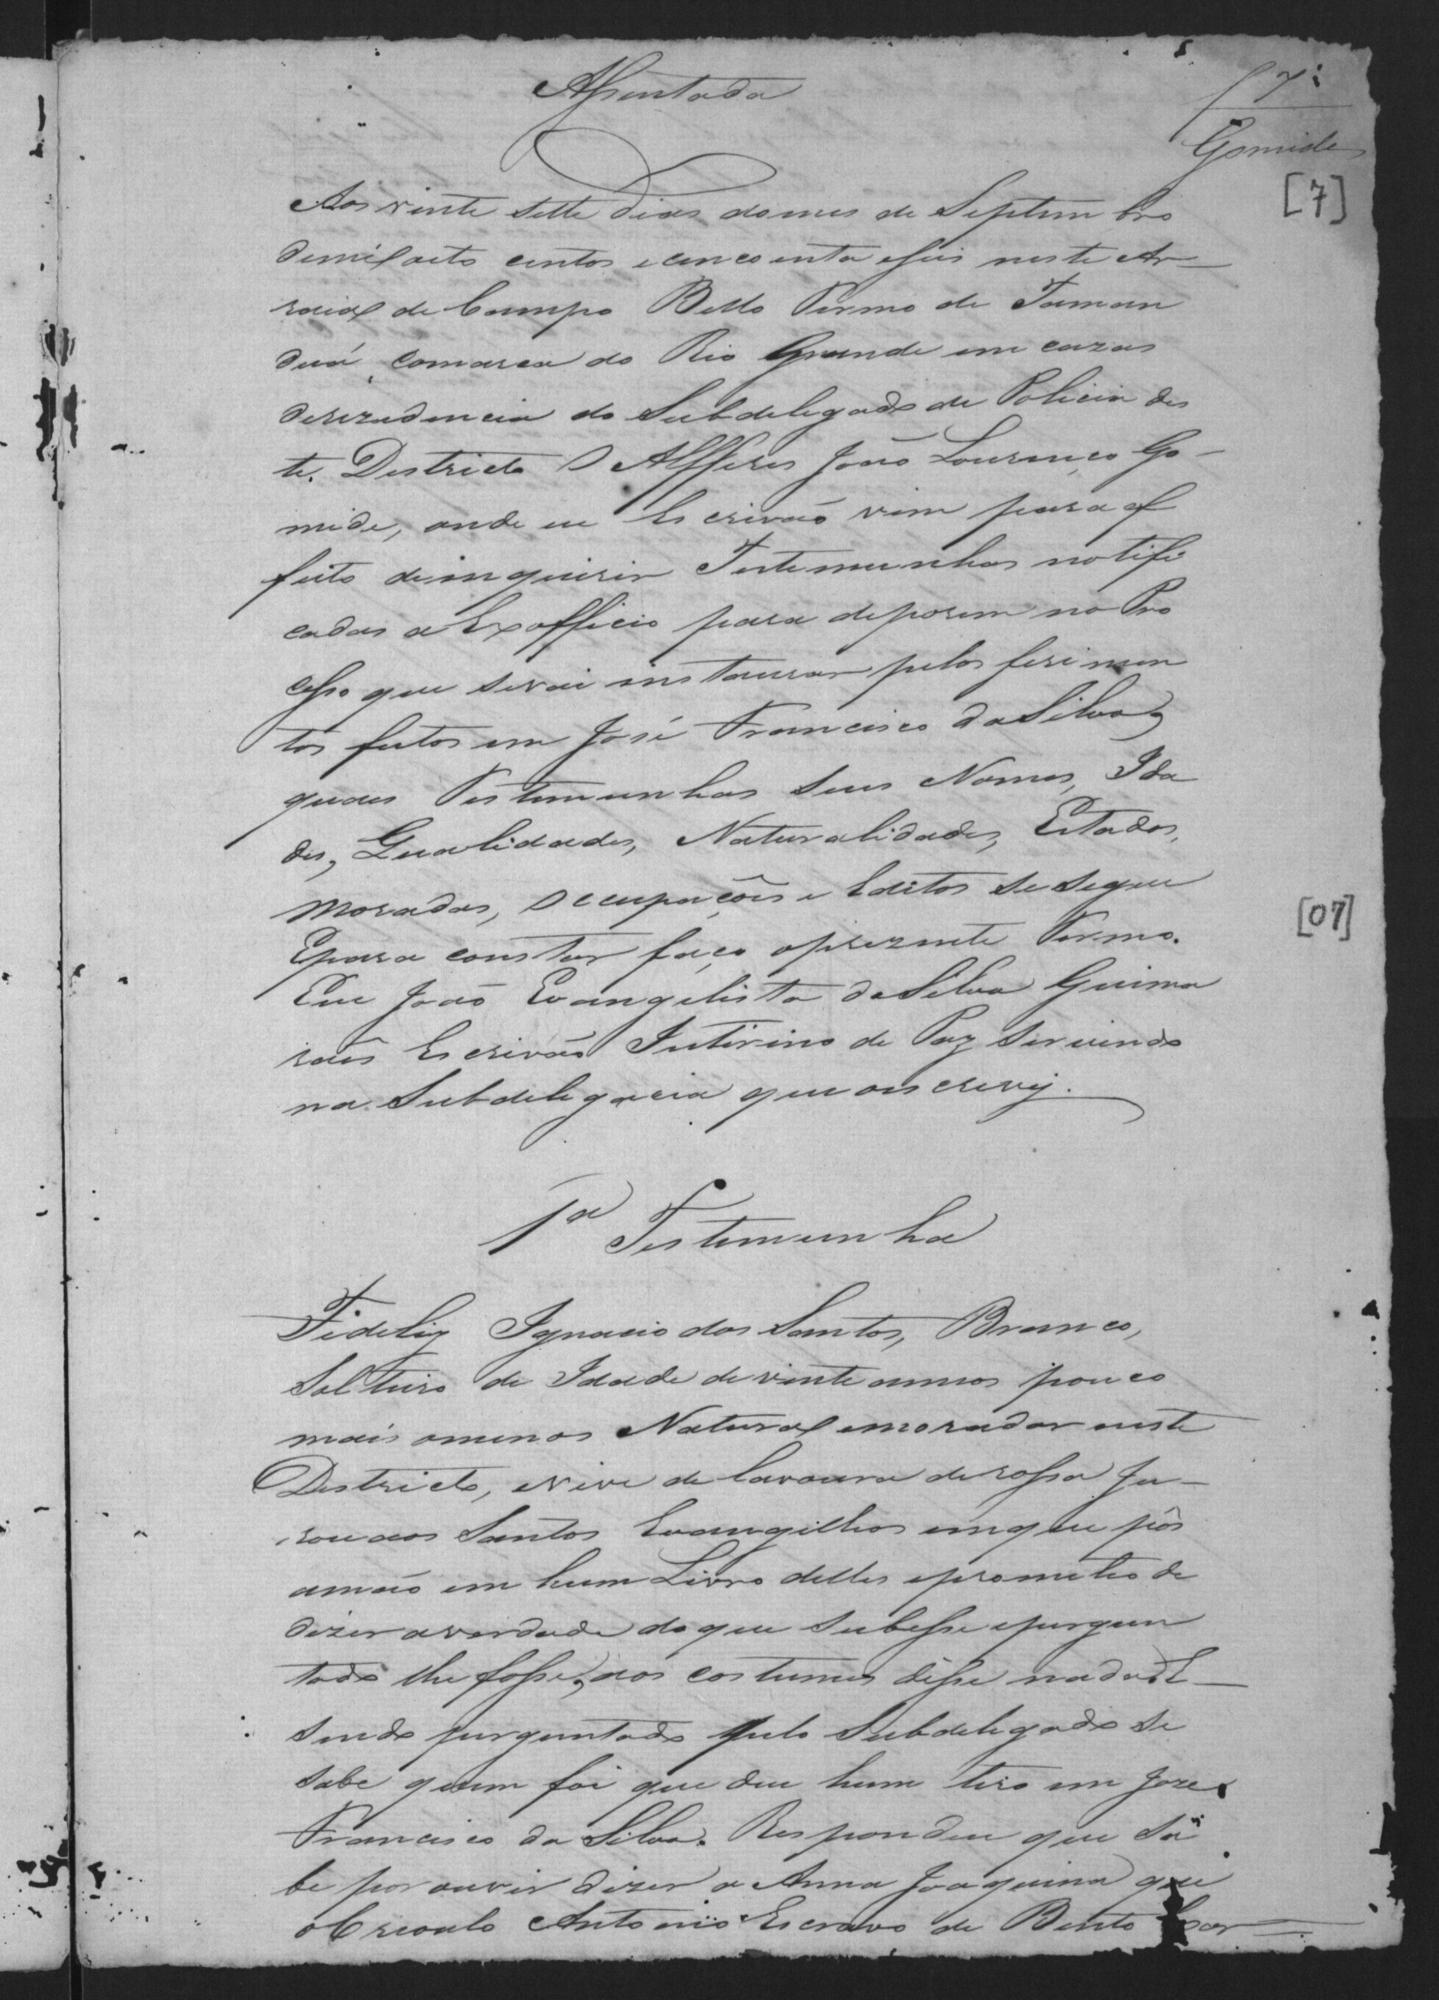 Assentada
7
Gomide
[7]
Aos vinte sette dias domes de Septembro
demil oito centos ecincoenta eseis neste Ar-
raial de Campo Bello Termo de Taman
duá comarca do Rio Grande em cazas
derezidencia do Subdelegado de Policia des
te. Districto O Alfferes João Lourenço Go-
mide, onde eu Escrivão vim para of
feito deinquirir Testemunhas notifi
cadas a Exofficio para deporem no Pro
cesso que sevai instaurar pelos ferimen
tos feitos em José Francisco da Silva,
quaes Testemunhas seus Nomes, Ida
des, Qualidades, Naturalidades, Estados,
Moradas, Occupações e Editos se segue
Epara constar faço oprezente Termo.
Eu João Evangelista da Silva Guima
raes Escrivão Interino de Paz servindo
na Subdelegacia que oescrevy.
[07]
1ª Testemunha
Fideliz Ignacio dos Santos, Branco,
Solteiro de Idade devinte annos pouco
mais omenos Natural emorador neste
Districto, evive de lavoura derossa Ju-
rou aos Santos Evangelhos emque pôs
amão em hum Livro delles eprometeo de
dizer averdade doque subesse epergun
tado lhe fosse, aos costumes disse nada. E
sendo perguntado pelo Subdelegado se
sabe quem foi que deu hum tiro em Joze
Francisco da Silva. Respondeu que sa
be por ouvir dizer a Anna Joaquina que
oCreoulo Antonio Escravo de Bento